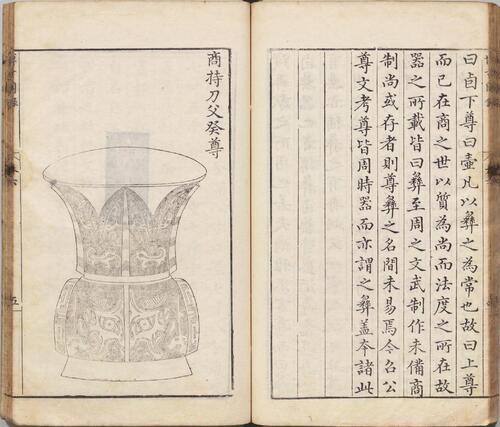 曰卣下尊曰壷凡以彝之為常也故曰上尊
而已在商之世以質為尚而法度之所在故
器之所載皆曰彝至周之文武制作未備商
制尚或存者則尊彝之名間未易焉今召公
尊文考尊皆周時器而亦謂之彝蓋本諸此
商持刀父癸尊